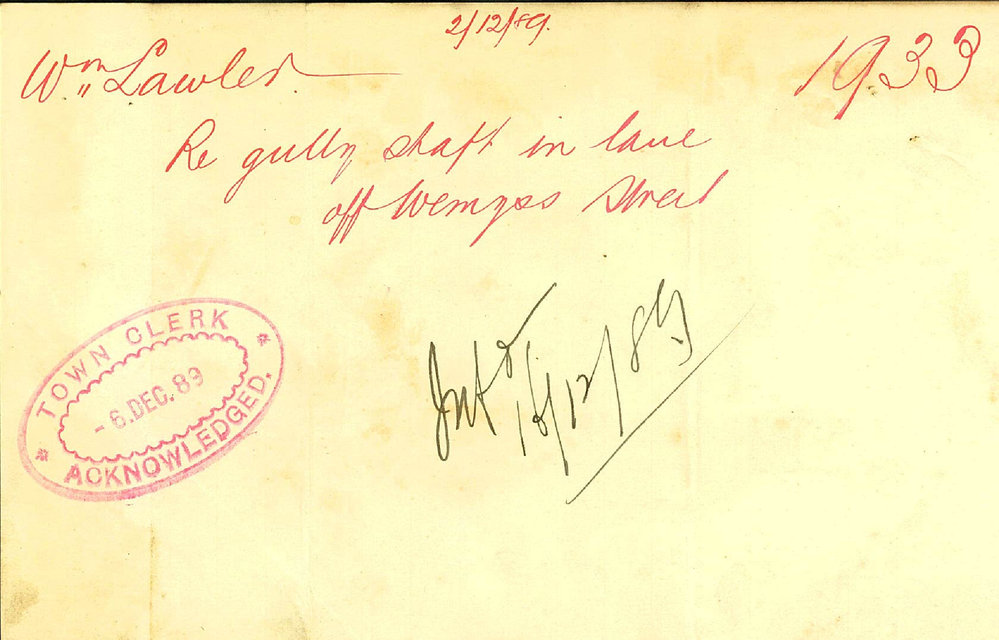 2/12/89.
Wm Lawler.
1933
Re gully shaft in lane
off Wemyss Street
TOWN CLERK
- 6. DEC. 89
ACKNOWLEDGED.
/12/89